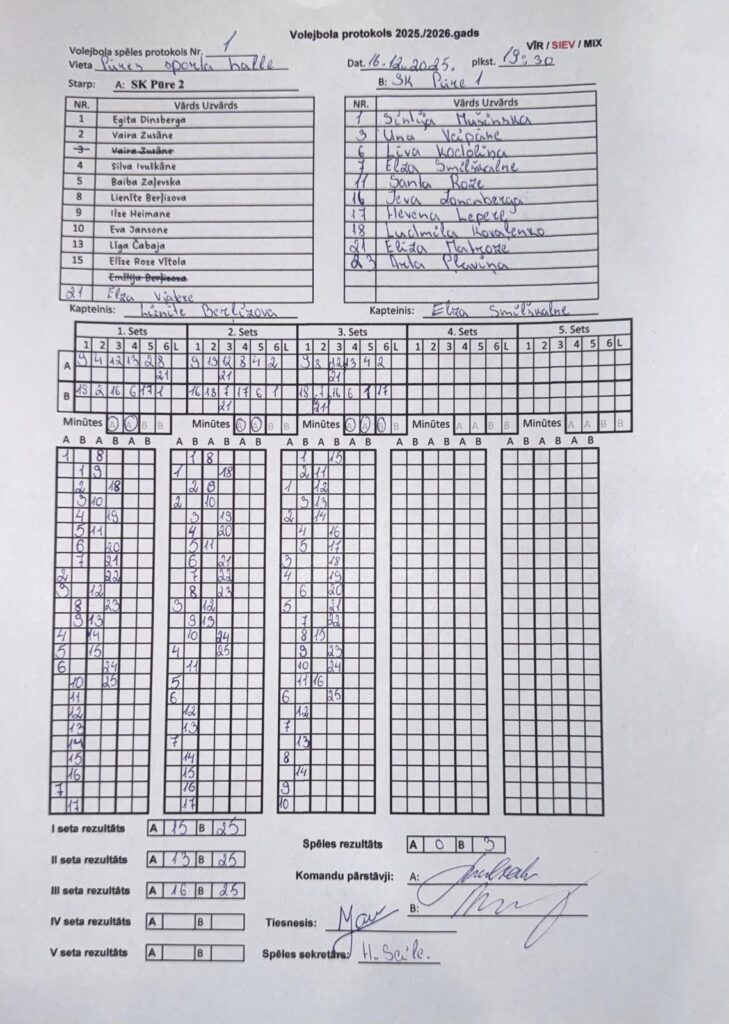 Volejbola protokols 2025./2026.gads
VĪR / SIEV / MIX
Volejbola spēles protokols Nr. 1
Vieta Pūres sporta halle Dat. 16.12.2025. plkst. 19:30
Starp: A: SK Pūre 2 B: SK Pūre 1
NR. Vārds Uzvārds
1 Egita Dinsberga
2 Vaira Zusāne
3 Vaira Zusāne
4 Silva Ivuškāne
5 Baiba Zaļevska
8 Lienīte Berļizova
9 Ilze Heimane
10 Eva Jansone
13 Līga Čabaja
15 Elīze Roze Vītola
Emīlija Berļizova
21 Elza
Kapteinis: Lienīte Berļizova
NR. Vārds Uzvārds
1 Sintija Mušinska
3 Una Veipāne
6 Līva Kodoliņa
7 Elza Smilškalne
11 Santa Roze
16 Ieva
17 Helvena Lepere
18 Ludmila Kovaļenko
21 Elīza Matroze
23 Arta Pļaviņa
Kapteinis: Elza Smilškalne
1. Sets 2. Sets 3. Sets 4. Sets 5. Sets
1 2 3 4 5 6 L 1 2 3 4 5 6 L 1 2 3 4 5 6 L 1 2 3 4 5 6 L 1 2 3 4 5 6 L
A 9 4 12 13 2 8 9 13 12 8 4 2 9 8 12 13 4 2
21 21 21
B 18 2 16 6 17 1 16 18 7 17 6 1 18 7 16 6 1 17
21 21
Minūtes A A B B Minūtes A A B B Minūtes A A B B Minūtes A A B B Minūtes A A B B
A B A B A B A B A B A B A B A B A B A B A B A B A B A B A B
1 8 1 8 1 15
1 9 1 18 2 11
2 18 2 9 1 12
3 10 2 10 3 13
4 19 3 19 2 14
5 11 4 20 4 16
6 20 5 11 5 17
7 21 6 21 3 18
2 22 7 22 4 19
3 12 8 23 6 20
8 23 3 12 5 21
9 13 9 13 7 22
4 14 10 24 8 15
5 15 4 25 9 23
6 24 11 10 24
10 25 5 11 16
11 6 6 25
12 12 12
13 13 7
14 7 13
15 14 8
16 15 14
7 16 9
17 17 10
I seta rezultāts A 15 B 25
II seta rezultāts A 13 B 25
III seta rezultāts A 16 B 25
IV seta rezultāts A B
V seta rezultāts A B
Spēles rezultāts A 0 B 3
Komandu pārstāvji: A:
B:
Tiesnesis:
Spēles sekretārs: H. Seile.